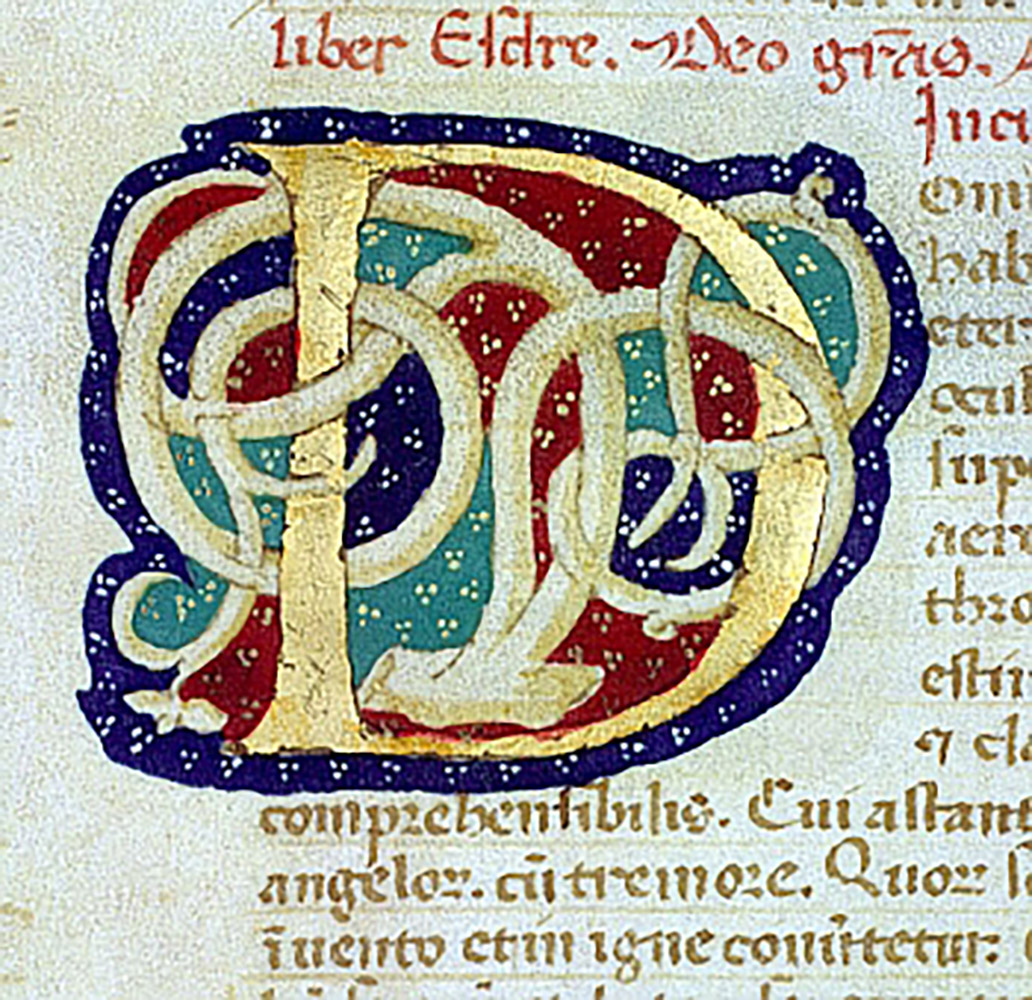 liber Eſdre. Deo gr̄as.
Inci
D
om
hab
eter
ocul
ſup
aeri
thro
eſtin
⁊ cla
comprehenſibilis. Cui aſtant
angeloꝝ. cū tremore. Quoꝝ ſ
ī uento et in igne conu̅rtetur.